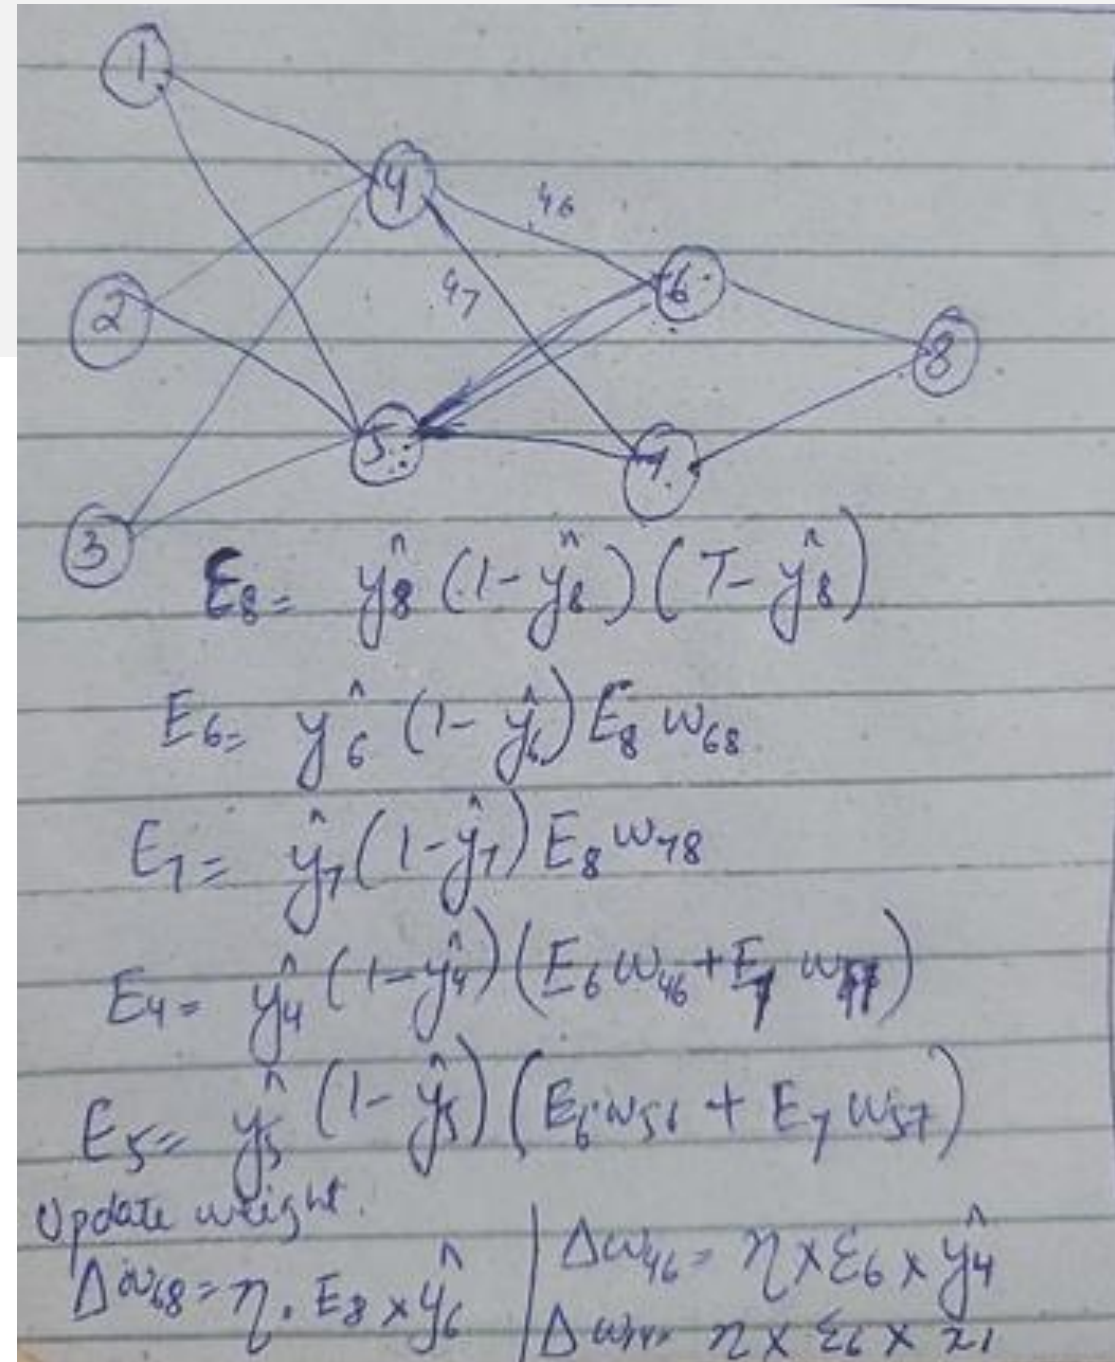 1
4
46
2
47
6
8
5
7
3
E8= ŷ8 (1- ŷ8) (T- ŷ8)
E6= ŷ6 (1- ŷ6) E8 w68
E7= ŷ7 (1- ŷ7) E8 w78
E4= ŷ4 (1- ŷ4) (E6 w46 + E7 w47)
E5= ŷ5 (1- ŷ5) (E6 w56 + E7 w57)
Update weight.
Δw68 = η. E8 x ŷ6
Δw46 = η x ε6 x ŷ4
η x ε6 x x1